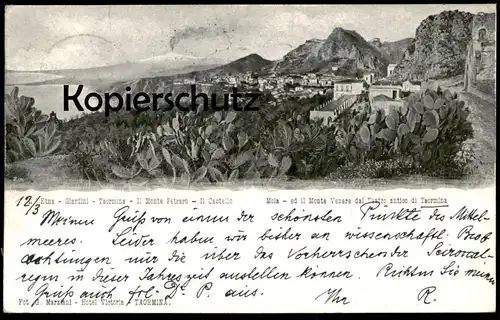 Kopierschutz
Etna - Giardini - Taormina - Il Monte Petraro - Il Castello Mola - ed il Monte Venere dal Teatro antico di Taormina
12/3
Meinen Gruß von einem der schönsten Punkte des Mittel-
meeres. Leider haben wir bisher an wissenschaftl. Beob
achtungen nur die über das Vorherrschen der Sciroccal-
regen in dieser Jahreszeit anstellen können. Richten Sie meinen
Gruß auch frl. Dr. P. aus. Ihr R.
Fot. G. Marziani - Hotel Victoria - TAORMINA.